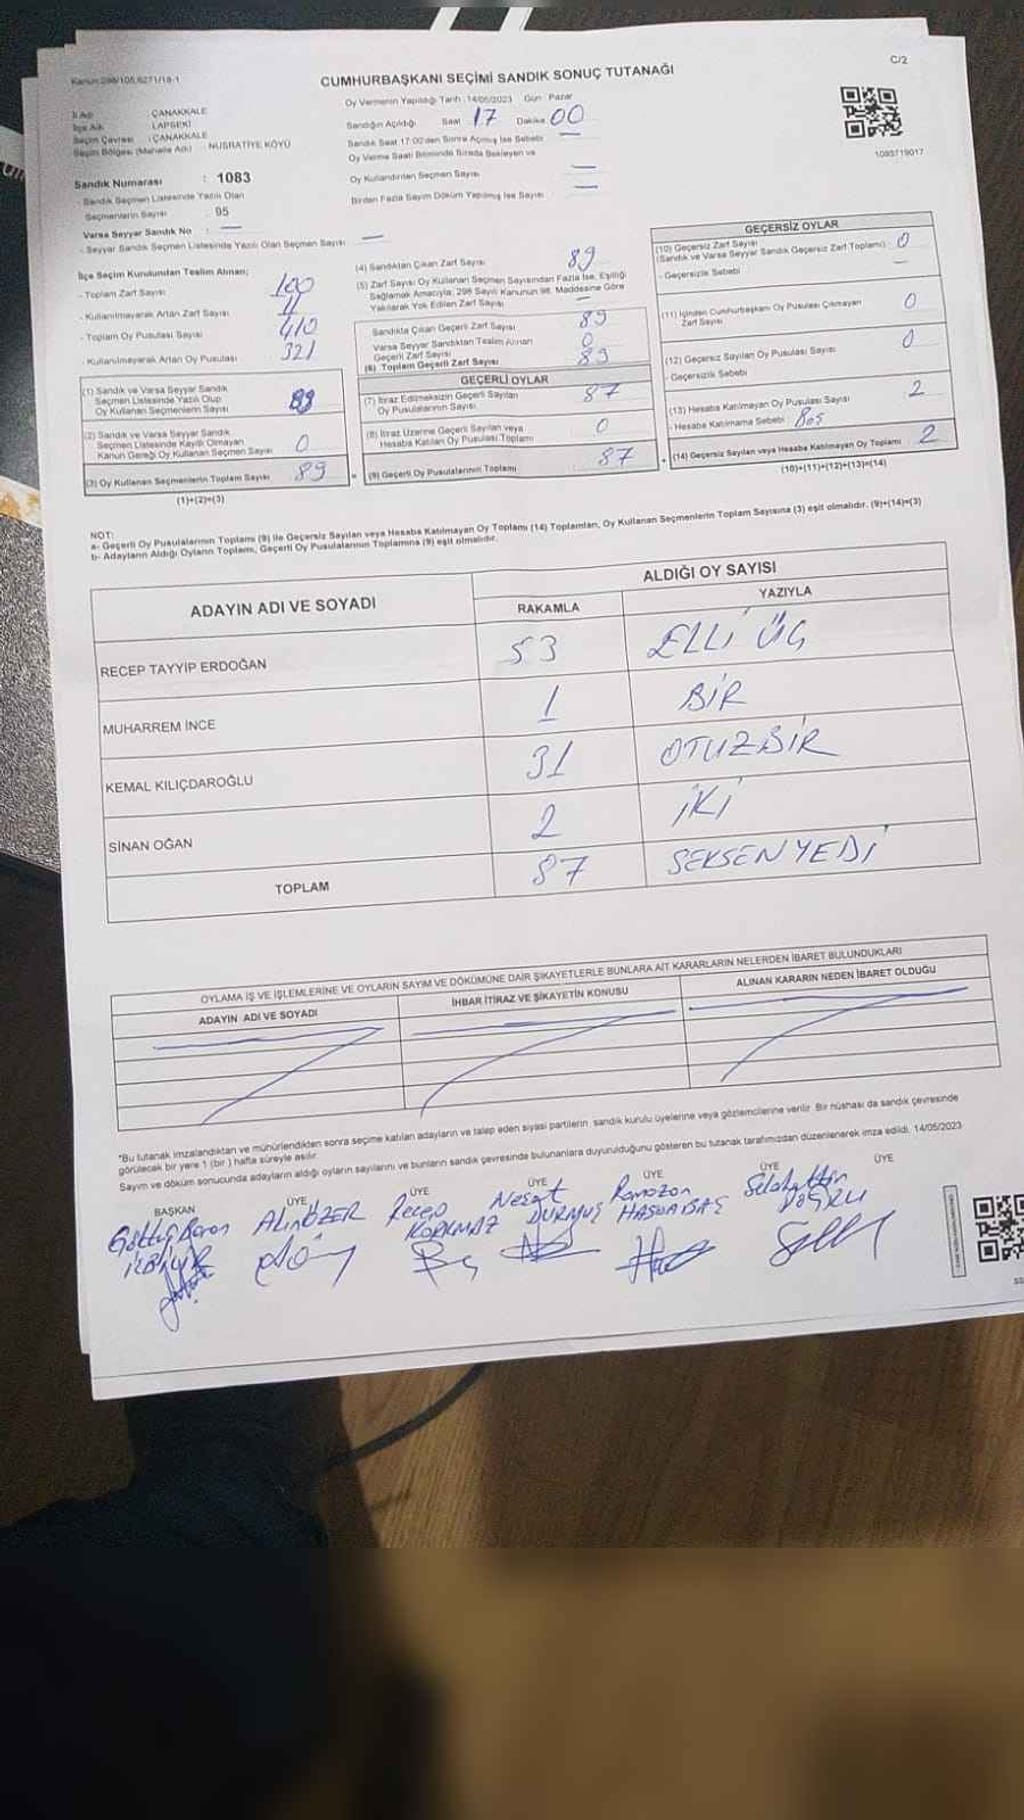 Kanun:298/105,6271/18-1
C/2
CUMHURBAŞKANI SEÇİMİ SANDIK SONUÇ TUTANAĞI
İli Adı : ÇANAKKALE
İlçe Adı : LAPSEKİ
Seçim Çevresi : ÇANAKKALE
Seçim Bölgesi (Mahalle Adı) : NUSRATİYE KÖYÜ
Sandık Numarası : 1083
Sandık Seçmen Listesinde Yazılı Olan
Seçmenlerin Sayısı : 95
Varsa Seyyar Sandık No : —
- Seyyar Sandık Seçmen Listesinde Yazılı Olan Seçmen Sayısı : —
Oy Vermenin Yapıldığı Tarih :14/05/2023 Gün : Pazar
Sandığın Açıldığı Saat 17 Dakika 00
Sandık Saat 17:00'den Sonra Açılmış İse Sebebi : —
Oy Verme Saati Bitiminde Sırada Bekleyen ve
Oy Kullandırılan Seçmen Sayısı : —
Birden Fazla Sayım Döküm Yapılmış İse Sayısı : —
1093719017
İlçe Seçim Kurulundan Teslim Alınan;
- Toplam Zarf Sayısı : 100
- Kullanılmayarak Artan Zarf Sayısı : 11
- Toplam Oy Pusulası Sayısı : 410
- Kullanılmayarak Artan Oy Pusulası : 321
(1) Sandık ve Varsa Seyyar Sandık
Seçmen Listesinde Yazılı Olup
Oy Kullanan Seçmenlerin Sayısı : 89
(2) Sandık ve Varsa Seyyar Sandık
Seçmen Listesinde Kayıtlı Olmayan
Kanun Gereği Oy Kullanan Seçmen Sayısı : 0
(3) Oy Kullanan Seçmenlerin Toplam Sayısı : 89
(1)+(2)=(3)
(4) Sandıktan Çıkan Zarf Sayısı : 89
(5) Zarf Sayısı Oy Kullanan Seçmen Sayısından Fazla İse, Eşitliği
Sağlamak Amacıyla; 298 Sayılı Kanunun 98. Maddesine Göre
Yakılarak Yok Edilen Zarf Sayısı : —
Sandıkta Çıkan Geçerli Zarf Sayısı : 89
Varsa Seyyar Sandıktan Teslim Alınan
Geçerli Zarf Sayısı : 0
(6) Toplam Geçerli Zarf Sayısı : 89
GEÇERLİ OYLAR
(7) İtiraz Edilmeksizin Geçerli Sayılan
Oy Pusulalarının Sayısı : 87
(8) İtiraz Üzerine Geçerli Sayılan veya
Hesaba Katılan Oy Pusulası Toplamı : 0
= (9) Geçerli Oy Pusulalarının Toplamı : 87
GEÇERSİZ OYLAR
(10) Geçersiz Zarf Sayısı
(Sandık ve Varsa Seyyar Sandık Geçersiz Zarf Toplamı) : 0
- Geçersizlik Sebebi : —
(11) İçinden Cumhurbaşkanı Oy Pusulası Çıkmayan
Zarf Sayısı : 0
(12) Geçersiz Sayılan Oy Pusulası Sayısı : 0
- Geçersizlik Sebebi
(13) Hesaba Katılmayan Oy Pusulası Sayısı : 2
- Hesaba Katılmama Sebebi : Boş
+ (14) Geçersiz Sayılan veya Hesaba Katılmayan Oy Toplamı : 2
(10)+(11)+(12)+(13)=(14)
NOT:
a- Geçerli Oy Pusulalarının Toplamı (9) ile Geçersiz Sayılan veya Hesaba Katılmayan Oy Toplamı (14) Toplamları, Oy Kullanan Seçmenlerin Toplam Sayısına (3) eşit olmalıdır. (9)+(14)=(3)
b- Adayların Aldığı Oyların Toplamı, Geçerli Oy Pusulalarının Toplamına (9) eşit olmalıdır.
ADAYIN ADI VE SOYADI
ALDIĞI OY SAYISI
RAKAMLA YAZIYLA
RECEP TAYYİP ERDOĞAN 53 ELLİ ÜÇ
MUHARREM İNCE 1 BİR
KEMAL KILIÇDAROĞLU 31 OTUZBİR
SİNAN OĞAN 2 İKİ
TOPLAM 87 SEKSENYEDİ
OYLAMA İŞ VE İŞLEMLERİNE VE OYLARIN SAYIM VE DÖKÜMÜNE DAİR ŞİKAYETLERLE BUNLARA AİT KARARLARIN NELERDEN İBARET BULUNDUKLARI
ADAYIN ADI VE SOYADI
İHBAR İTİRAZ VE ŞİKAYETİN KONUSU
ALINAN KARARIN NEDEN İBARET OLDUĞU
*Bu tutanak imzalandıktan ve mühürlendikten sonra seçime katılan adayların ve talep eden siyasi partilerin sandık kurulu üyelerine veya gözlemcilerine verilir. Bir nüshası da sandık çevresinde
görülecek bir yere 1 (bir ) hafta süreyle asılır.
Sayım ve döküm sonucunda adayların aldığı oyların sayılarını ve bunların sandık çevresinde bulunanlara duyurulduğunu gösteren bu tutanak tarafımızdan düzenlenerek imza edildi. 14/05/2023
BAŞKAN ÜYE ÜYE ÜYE ÜYE ÜYE ÜYE
ALİ ÖZER
Recep
KORKMAZ
Nesat
DURMUŞ
Ramazan
Selahattin
DOĞRU